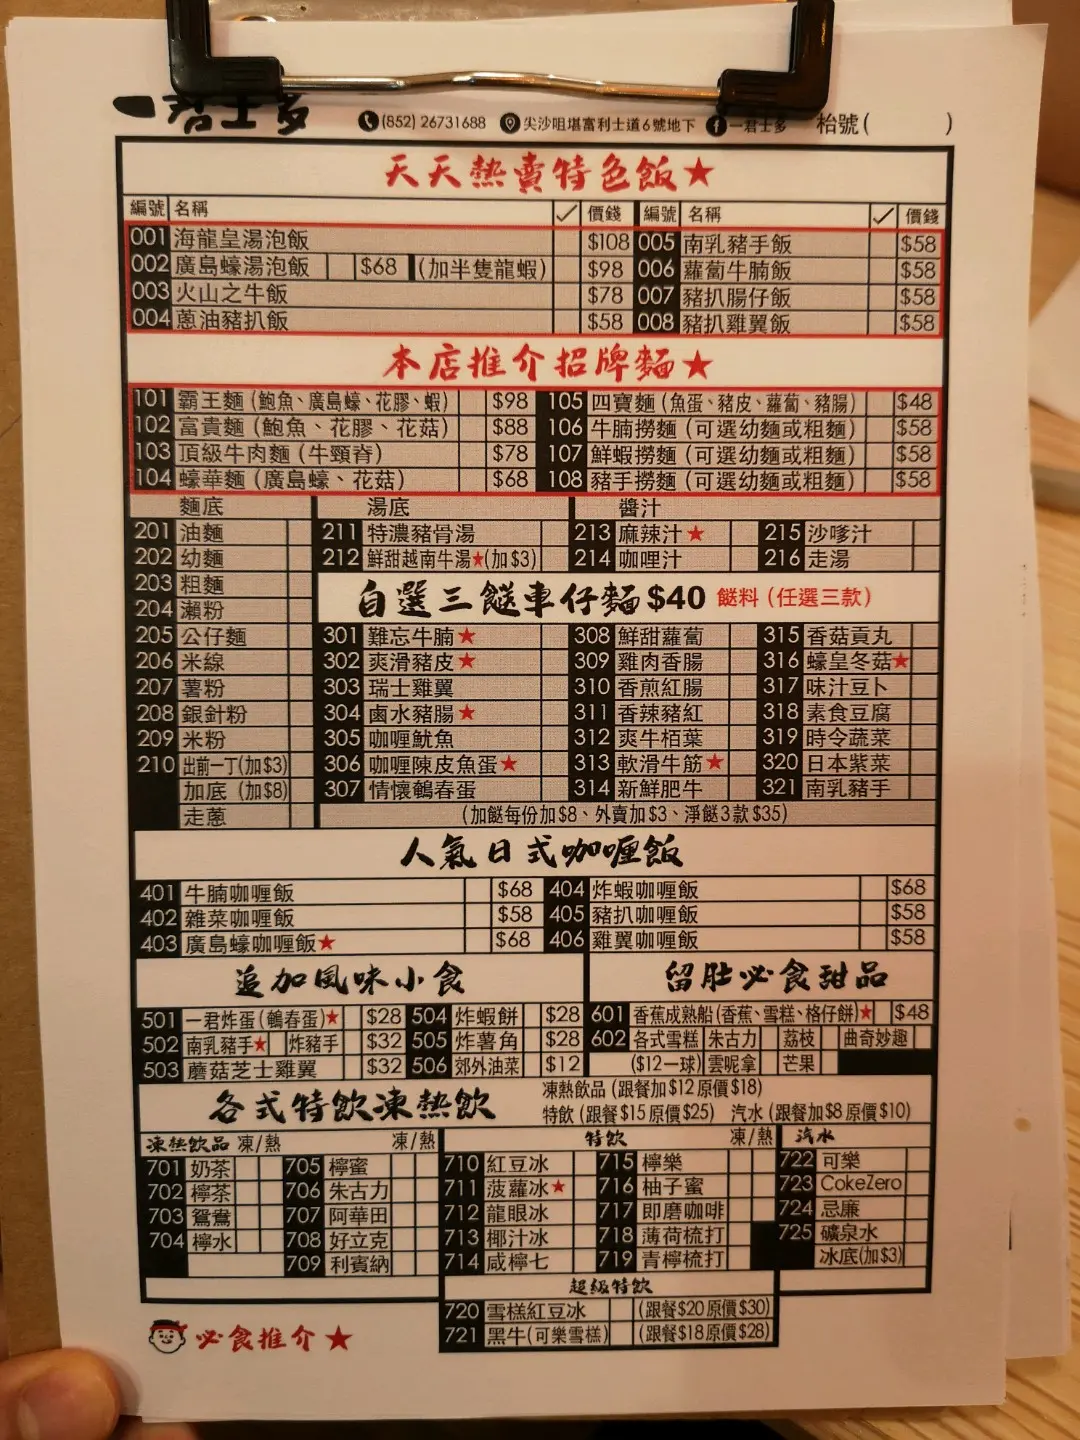 一君士多 (852) 26731688 尖沙咀堪富利士道6號地下 一君士多 枱號( )
天天熱賣特色飯★
編號 名稱 ✓ 價錢 編號 名稱 ✓ 價錢
001 海龍皇湯泡飯 $108 005 南乳豬手飯 $58
002 廣島蠔湯泡飯 $68 (加半隻龍蝦) $98 006 蘿蔔牛腩飯 $58
003 火山之牛飯 $78 007 豬扒腸仔飯 $58
004 蔥油豬扒飯 $58 008 豬扒雞翼飯 $58
本店推介招牌麵★
101 霸王麵 (鮑魚、廣島蠔、花膠、蝦) $98 105 四寶麵 (魚蛋、豬皮、蘿蔔、豬腸) $48
102 富貴麵 (鮑魚、花膠、花菇) $88 106 牛腩撈麵 (可選幼麵或粗麵) $58
103 頂級牛肉麵 (牛頸脊) $78 107 鮮蝦撈麵 (可選幼麵或粗麵) $58
104 蠔華麵 (廣島蠔、花菇) $68 108 豬手撈麵 (可選幼麵或粗麵) $58
麵底 湯底 醬汁
201 油麵 211 特濃豬骨湯 213 麻辣汁★ 215 沙嗲汁
202 幼麵 212 鮮甜越南牛湯★(加$3) 214 咖哩汁 216 走湯
203 粗麵
自選三餸車仔麵$40 餸料 (任選三款)
204 瀨粉
205 公仔麵 301 難忘牛腩★ 308 鮮甜蘿蔔 315 香菇貢丸
206 米線 302 爽滑豬皮★ 309 雞肉香腸 316 蠔皇冬菇★
207 薯粉 303 瑞士雞翼 310 香煎紅腸 317 味汁豆卜
208 銀針粉 304 鹵水豬腸★ 311 香辣豬紅 318 素食豆腐
209 米粉 305 咖喱魷魚 312 爽牛栢葉 319 時令蔬菜
210 出前一丁(加$3) 306 咖喱陳皮魚蛋★ 313 軟滑牛筋★ 320 日本紫菜
加底 (加$8) 307 情懷鵪春蛋 314 新鮮肥牛 321 南乳豬手
走蔥 (加餸每份加$8、外賣加$3、淨餸3款$35)
人氣日式咖喱飯
401 牛腩咖喱飯 $68 404 炸蝦咖喱飯 $68
402 雜菜咖喱飯 $58 405 豬扒咖喱飯 $58
403 廣島蠔咖喱飯★ $68 406 雞翼咖喱飯 $58
追加風味小食 留肚必食甜品
501 一君炸蛋(鵪春蛋)★ $28 504 炸蝦餅 $28 601 香蕉成熟船(香蕉、雪糕、格仔餅)★ $48
502 南乳豬手★ 炸豬手 $32 505 炸薯角 $28 602 各式雪糕 朱古力 荔枝 曲奇妙趣
503 蘑菇芝士雞翼 $32 506 郊外油菜 $12 ($12一球) 雲呢拿 芒果
各式特飲凍熱飲 凍熱飲品 (跟餐加$12原價$18)
特飲 (跟餐$15原價$25) 汽水 (跟餐加$8原價$10)
凍熱飲品 凍/熱 凍/熱 特飲 凍/熱 汽水
701 奶茶 705 檸蜜 710 紅豆冰 715 檸樂 722 可樂
702 檸茶 706 朱古力 711 菠蘿冰★ 716 柚子蜜 723 CokeZero
703 鴛鴦 707 阿華田 712 龍眼冰 717 即磨咖啡 724 忌廉
704 檸水 708 好立克 713 椰汁冰 718 薄荷梳打 725 礦泉水
709 利賓納 714 咸檸七 719 青檸梳打 冰底(加$3)
超級特飲
720 雪糕紅豆冰 (跟餐$20原價$30)
721 黑牛(可樂雪糕) (跟餐$18原價$28)
必食推介★